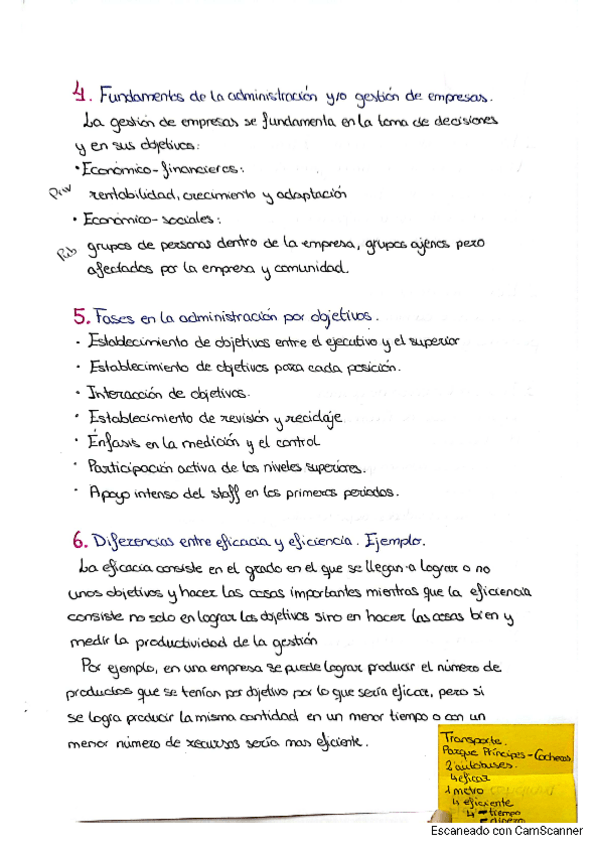 4. Fundamentos de la administración y/o gestión de empresas.
La gestión de empresas se fundamenta en la toma de decisiones
y en sus objetivos:
• Económico-financieros:
Priv
rentabilidad, crecimiento y adaptación
• Económico-sociales:
Pub
grupos de personas dentro de la empresa, grupos ajenos pero
afectados por la empresa y comunidad.
5. Fases en la administración por objetivos.
· Establecimiento de objetivos entre el ejecutivo y el superior
· Establecimiento de objetivos para cada posición.
· Interacción de objetivos.
· Establecimiento de revisión y reciclaje
· Énfasis en la medición y el control
· Participación activa de los niveles superiores.
· Apoyo intenso del staff en los primeros periodos.
6. Diferencias entre eficacia y eficiencia. Ejemplo.
La eficacia consiste en el grado en el que se llegan a lograr o no
unos objetivos y hacer las cosas importantes mientras que la eficiencia
consiste no solo en lograr los objetivos sino en hacer las cosas bien y
medir la productividad de la gestión
Por ejemplo, en una empresa se puede lograr producir el número de
productos que se tenían por objetivo por lo que sería eficaz, pero si
se logra producir la misma cantidad en un menor tiempo o con un
menor número de recursos sería mas eficiente.
Transporte.
Parque Príncipes - Cocheras
2 autobuses.
↳ eficaz
1 metro
↳ eficiente
↳ - tiempo
- dinero
Escaneado con CamScanner